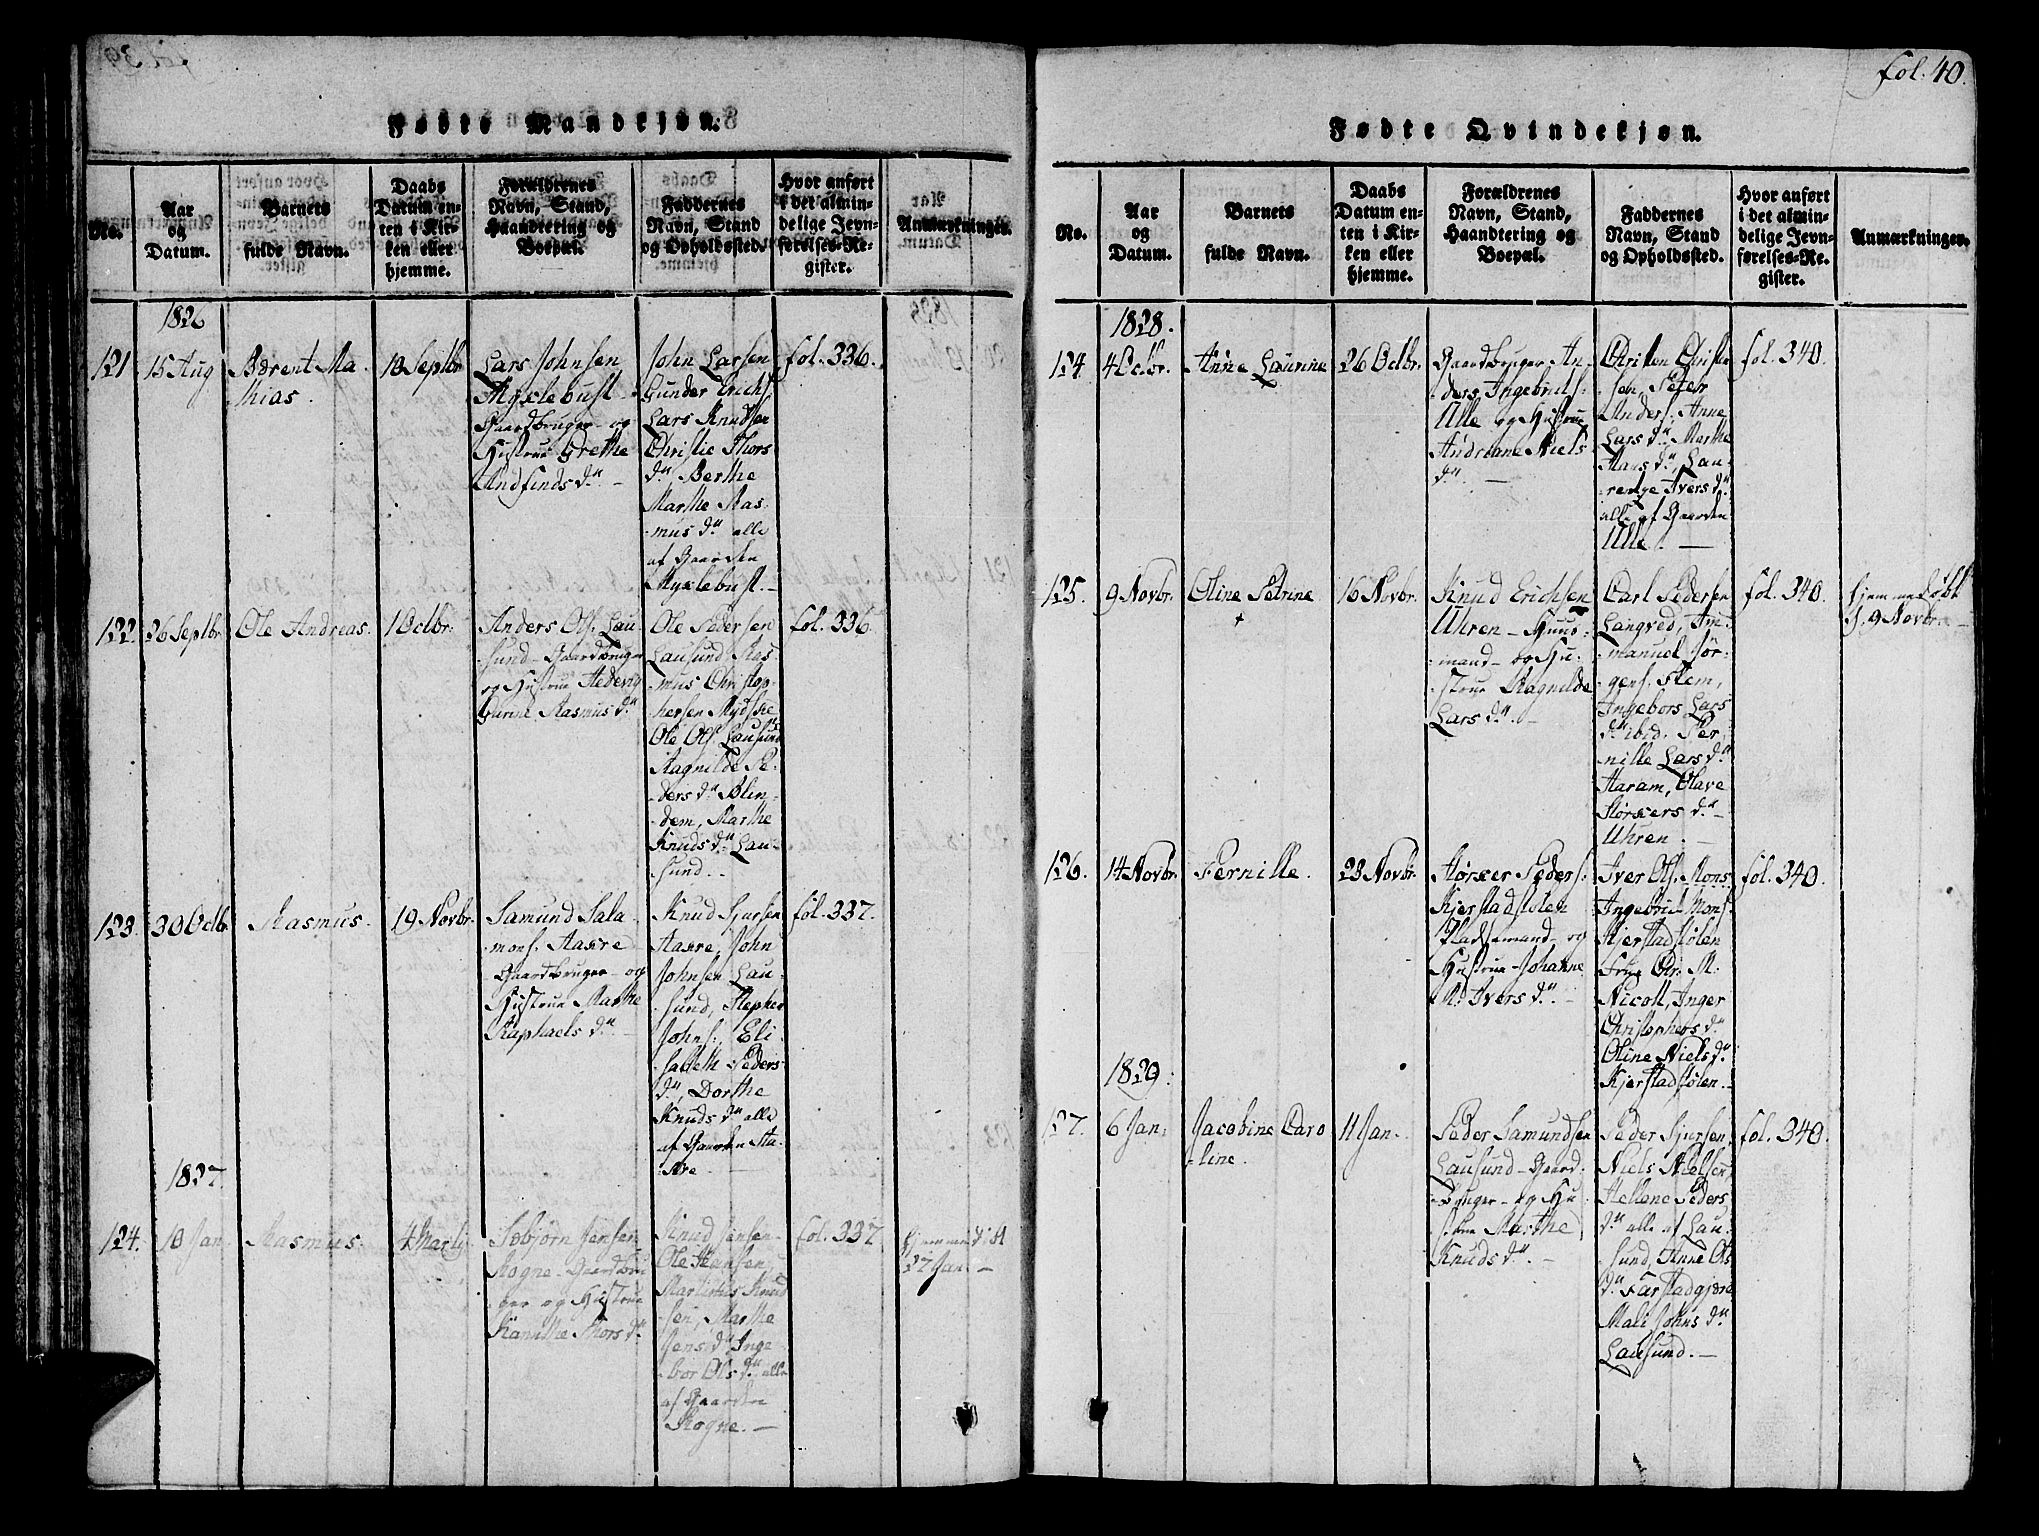 Fødte Mandkjøn.
No.
Aar
og
Datum.
Barnets
fulde Navn.
Daabs
Datum en-
ten i Kir-
ken eller
hjemme.
Forældrenes
Navn, Stand,
Haandtering og
Boepæl.
Faddernes
Navn, Stand
og Opholdssted.
Hvor anført
i det almin-
delige Jevn-
førelses-Re-
gister.
Anmærkninger.
1826
121
15 Aug
Bærent Ma
thias.
10 Septbr
Lars Johnsen
Myxlebust -
Gaardbruger - og
Hustrue Grethe
Andfinds dr. -
John Larsen
Gunder Erichs.
Lars Knudsen
Christie Thors
dr., Berthe
Marthe Ras-
mus dr. alle
af Gaarden
Myxlebust. -
fol. 336.
122.
26 Septbr
Ole Andreas.
1 Octbr.
Anders Ols. Lau-
sund - Gaardbruger
og Hustrue Hedevig
Gurine Rasmus dr.
Ole Pedersen
Lausund, Ras-
mus Christop-
hersen Mydske
Ole Ols. Lausund
Ragnilde Pe-
ders dr. Blin-
dem, Marthe
Knuds dr. Lau-
sund. -
fol. 336.
123.
30 Octb.
Rasmus.
19 Novbr.
Samund Sala-
mons. Aakre
- Gaardbruger - og
Hustrue Marthe
Raphaels dr. -
Knud Sjursen
Aakre, John
Johnsen Lau-
sund, Stephen
Johns., Eli-
sabeth Peders
dr., Dorthe
Knuds dr. alle
af Gaarden Aa-
kre. -
fol. 337.
1827.
124.
10 Jan
Rasmus.
4 Martij
Sebjørn Jensen
Rogne - Gaardbru
ger og Hustrue
Kanutte Thors dr.
Knud Jensen
Ole Hansen,
Martinus Knud
sen, Marthe
Jens dr. Inge-
bor Ols dr. alle
af Gaarden
Rogne. -
fol. 337
hjemmed:H
27 Jan. -
fol. 40.
Fødte Qvindekjøn.
No.
Aar
og
Datum.
Barnets
fulde Navn.
Daabs
Datum en-
ten i Kir-
ken eller
hjemme.
Forældrenes
Navn, Stand,
Haandtering og
Boepæl.
Faddernes
Navn, Stand
og Opholdssted.
Hvor anført
i det almin-
delige Jevn-
førelses-Re-
gister.
Anmærkninger.
1828.
124.
4 Octbr.
Anne Laurine
26 Octbr.
Gaardbruger An-
ders Ingebrits.
Ulle og Hustrue
Andreane Niels
dr. -
Christen Christen
sen Peter
Anders. Anne
Lars dr., Marthe
Hans dr., Lau-
rentze Ivers dr.
alle af Gaarden
Ulle. -
fol. 340.
125.
9 Novbr.
Oline Petrine
+
16 Novbr.
Knud Erichsen
Uhren - Huus-
mand - og Hu-
strue Ragnilde
Lars dr. -
Carl Pedersen
Langved, Im-
manuel Jør-
gens. Flem,
Ingebors Lars
dr. ibid. Per-
nille Lars dr.
Haram, Olave
Størkers dr. -
Uhren. -
fol. 340.
hjemmedøbt
d. 9 Novbr. -
126.
14 Novbr.
Pernille.
23 Novbr.
Størker Peders.
Kjerstadstølen
Pladsemand - og
Hustrue Johanne
M. Ivers dr. -
Iver Ols. Mons
Ingebrit Mons.
Kjerstadstølen
Frue Chr. M.
Nicoll, Inger
Christophers dr.
Oline Niels dr.
Kjerstadstølen. -
fol. 340.
1829.
127.
6 Jan.
Jacobine Caro
-line.
11 Jan.
Peder Samundsen
Lausund - Gaard-
bruger - og Hu-
strue Marthe
Knuds dr. -
Peder Sjursen,
Niels Nielsen,
Hellene Peders
dr. alle af Lau-
sund, Anne Ols
dr. Farstadgjære
Mali Johns dr.
Lausund. -
fol. 340.